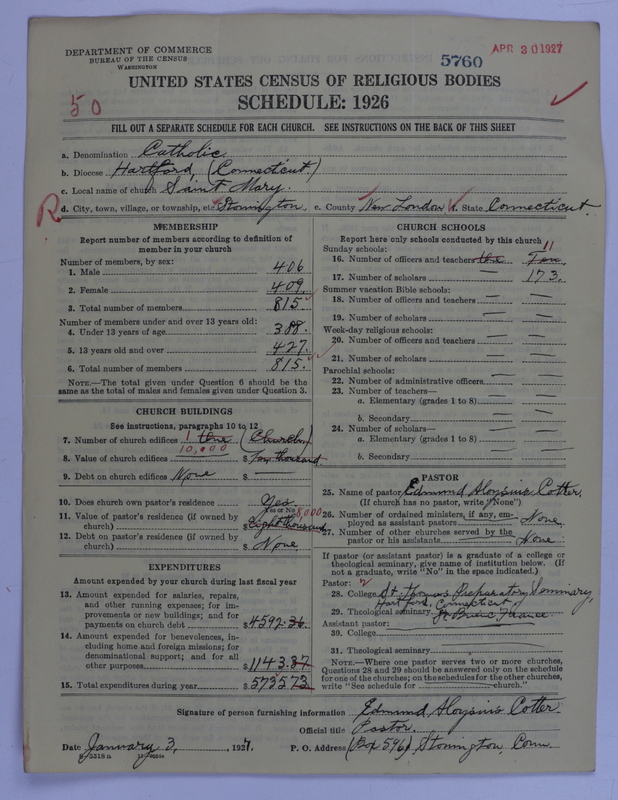 DEPARTMENT OF COMMERCE
BUREAU OF THE CENSUS
WASHINGTON
5760
APR 30 1927
UNITED STATES CENSUS OF RELIGIOUS BODIES
SCHEDULE: 1926
50
FILL OUT A SEPARATE SCHEDULE FOR EACH CHURCH. SEE INSTRUCTIONS ON THE BACK OF THIS SHEET
a. Denomination Catholic
b. Diocese Hartford, (Connecticut)
c. Local name of church Saint Mary.
R d. City, town, village, or township, etc. Stonington, e. County New London f. State Connecticut.
MEMBERSHIP
Report number of members according to definition of
member in your church
Number of members, by sex:
1. Male 406
2. Female 409.
3. Total number of members 815
Number of members under and over 13 years old:
4. Under 13 years of age 388.
5. 13 years old and over 427.
6. Total number of members 815.
NOTE.—The total given under Question 6 should be the
same as the total of males and females given under Question 3.
CHURCH BUILDINGS
See instructions, paragraphs 10 to 12
7. Number of church edifices 1 One (Church)
10,000
8. Value of church edifices $ Ten thousand
9. Debt on church edifices None $
10. Does church own pastor's residence Yes
Yes or No
11. Value of pastor's residence (if owned by
church) $ Eight thousand 8,000
12. Debt on pastor's residence (if owned by
church) $ None
EXPENDITURES
Amount expended by your church during last fiscal year
13. Amount expended for salaries, repairs,
and other running expenses; for im-
provements or new buildings; and for
payments on church debt $ 4592.36
14. Amount expended for benevolences, in-
cluding home and foreign missions; for
denominational support; and for all
other purposes $ 1143.37
15. Total expenditures during year $ 5735 73
CHURCH SCHOOLS
Report here only schools conducted by this church
Sunday schools:
16. Number of officers and teachers 11
17. Number of scholars — 173.
Summer vacation Bible schools:
18. Number of officers and teachers — —
19. Number of scholars — —
Week-day religious schools:
20. Number of officers and teachers — —
21. Number of scholars — —
Parochial schools:
22. Number of administrative officers — —
23. Number of teachers—
a. Elementary (grades 1 to 8) — —
b. Secondary — —
24. Number of scholars—
a. Elementary (grades 1 to 8) — —
b. Secondary — —
PASTOR
25. Name of pastor Edmund Aloysius Cotter,
(If church has no pastor, write "None")
26. Number of ordained ministers, if any, em-
ployed as assistant pastors None.
27. Number of other churches served by the
pastor or his assistants None.
If pastor (or assistant pastor) is a graduate of a college or
theological seminary, give name of institution below. (If
not a graduate, write "No" in the space indicated.)
Pastor:
28. College St. Thomas Preparatory Seminary,
Hartford, Connecticut
29. Theological seminary St. Brieuc France
Assistant pastor:
30. College
31. Theological seminary
NOTE.—Where one pastor serves two or more churches,
Questions 28 and 29 should be answered only on the schedule
for one of the churches; on the schedules for the other churches,
write "See schedule for church."
Signature of person furnishing information Edmund Aloysius Cotter.
Official title Pastor.
Date January 3, 1927. P. O. Address (Box 596) Stonington, Conn.